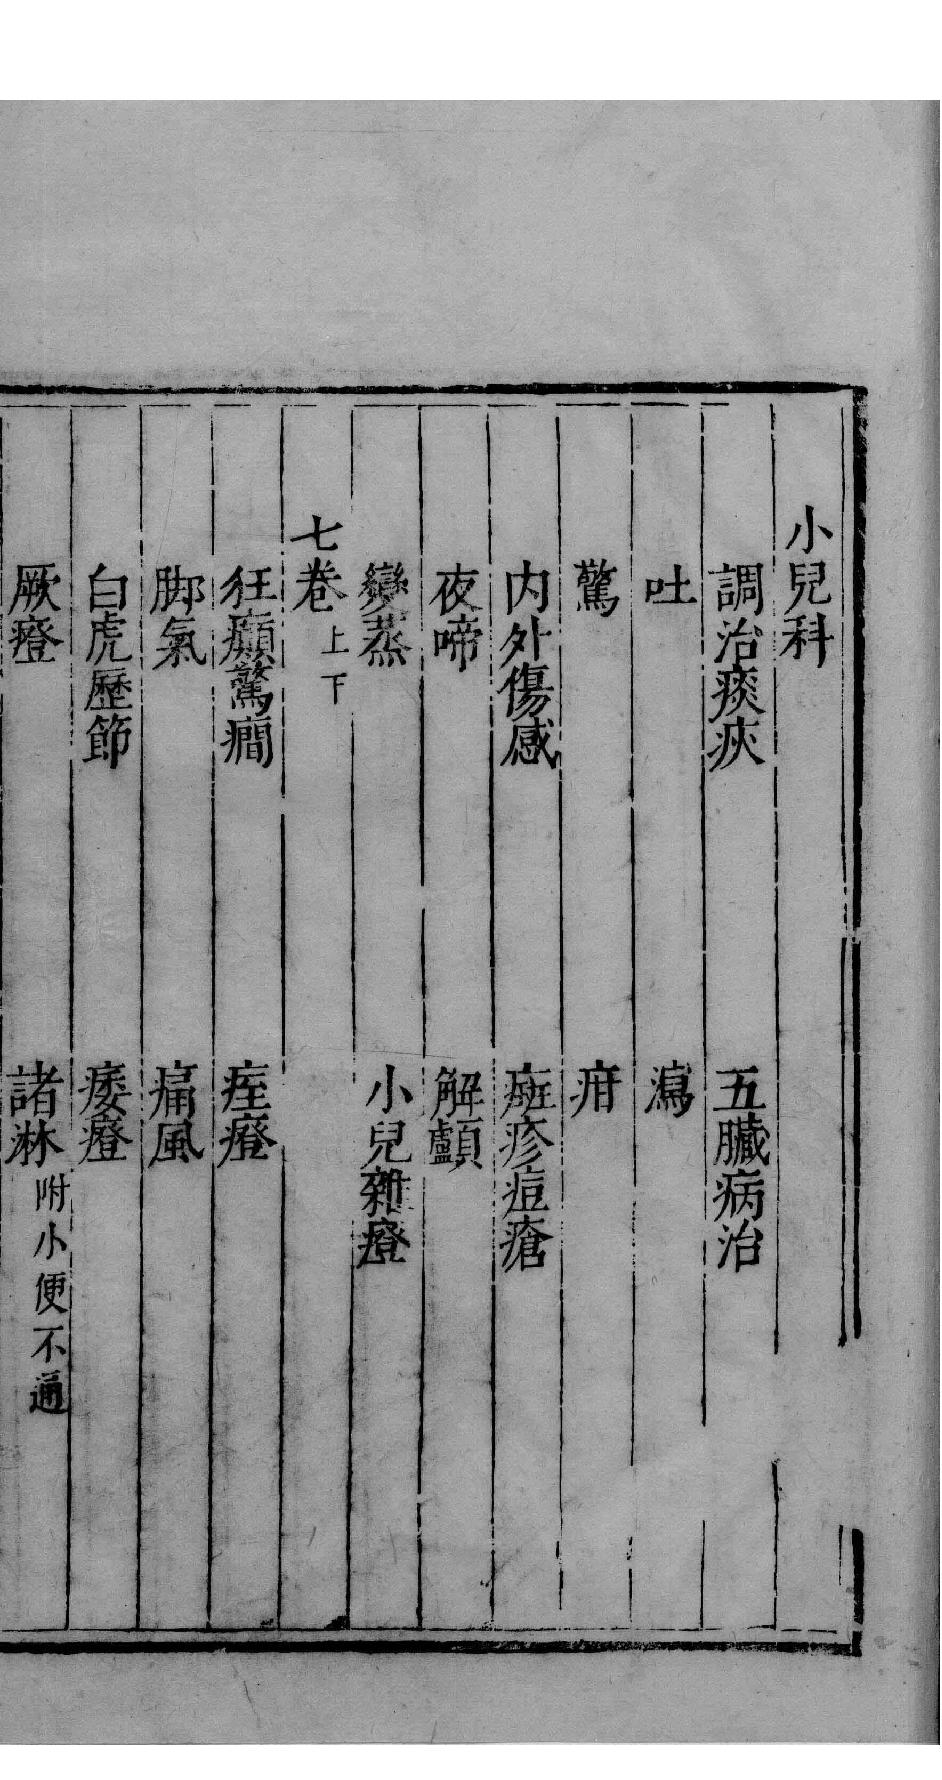 小兒科
調治痰疢　五臓病治
吐　瀉
驚　疳
内外傷感　痰疹痘瘡
夜啼　解顱
變蒸　小兒雜證
七卷上下
狂癲驚癎　痓證
脚氣　痛風
白虎歷節　痿證
厥證　諸淋附小便不通